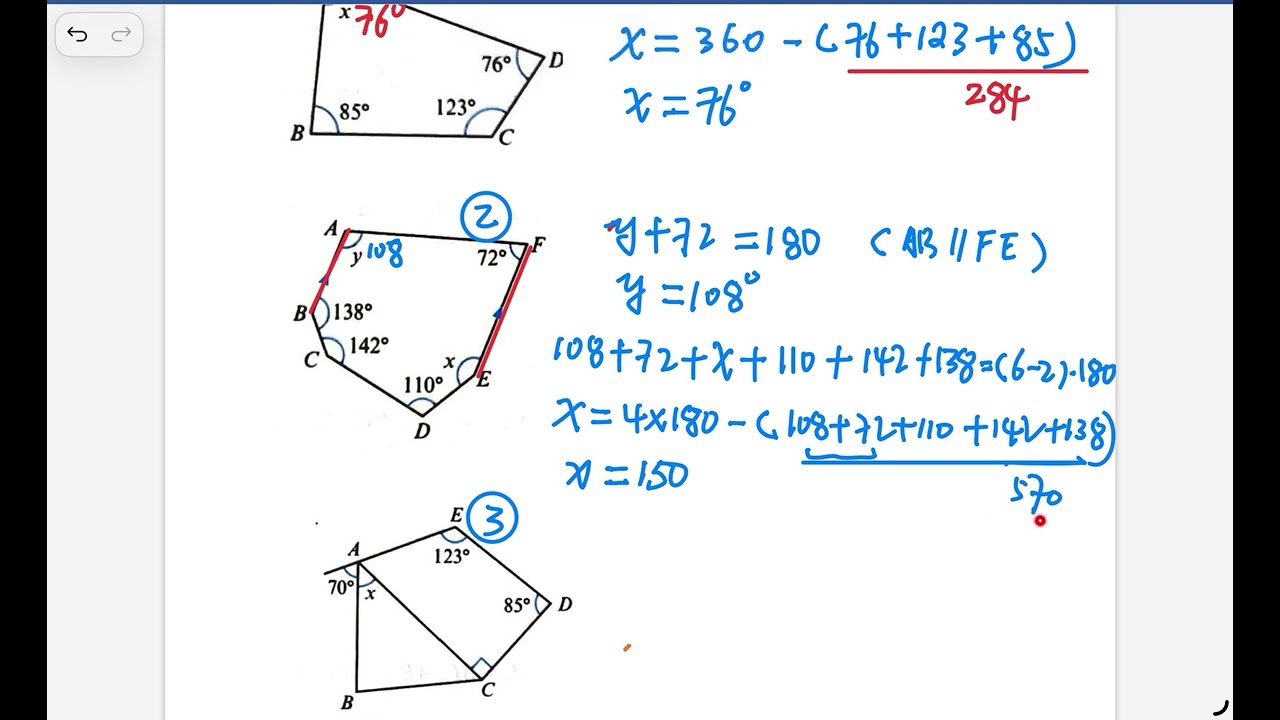 x 76°
76° D
85° 123°
B C
x = 360 - (76+123+85)
284
x = 76°
2
A F
y 108 72°
B 138°
C 142°
x
110° E
D
y+72 = 180 (AB // FE)
y = 108°
108+72+x+110+142+138=(6-2)·180
x = 4x180 - (108+72+110+142+138)
x = 150
570
E 3
A 123°
70° x
85° D
B C